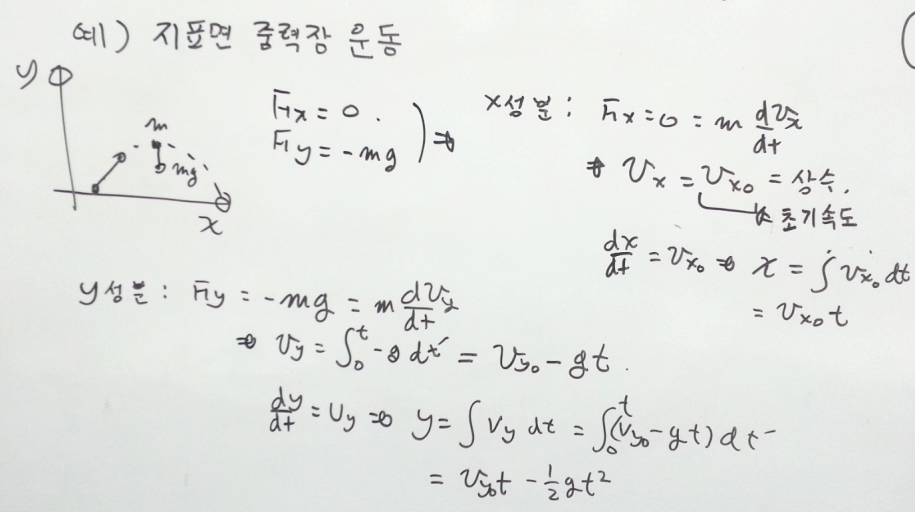 예) 지표면 중력장 운동
y
m
mg
x
Fx = 0.
Fy = -mg
⇒
x성분: Fx = 0 = m dVx/dt
⇒ Vx = Vx0 = 상수.
초기속도
dx/dt = Vx0 ⇒ x = ∫ Vx0 dt
= Vx0 t
y성분: Fy = -mg = m dVy/dt
⇒ Vy = ∫₀ᵗ -g dt' = Vy0 - gt.
dy/dt = Vy ⇒ y = ∫ Vy dt = ∫₀ᵗ (Vy0 - gt) dt
= Vy0 t - 1/2 gt²